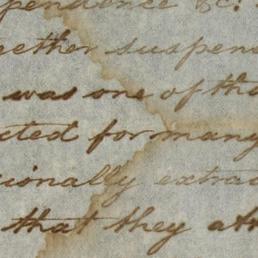 pendence &c.
gether suspen
was one of th
cted for many
sionally extra
that they at